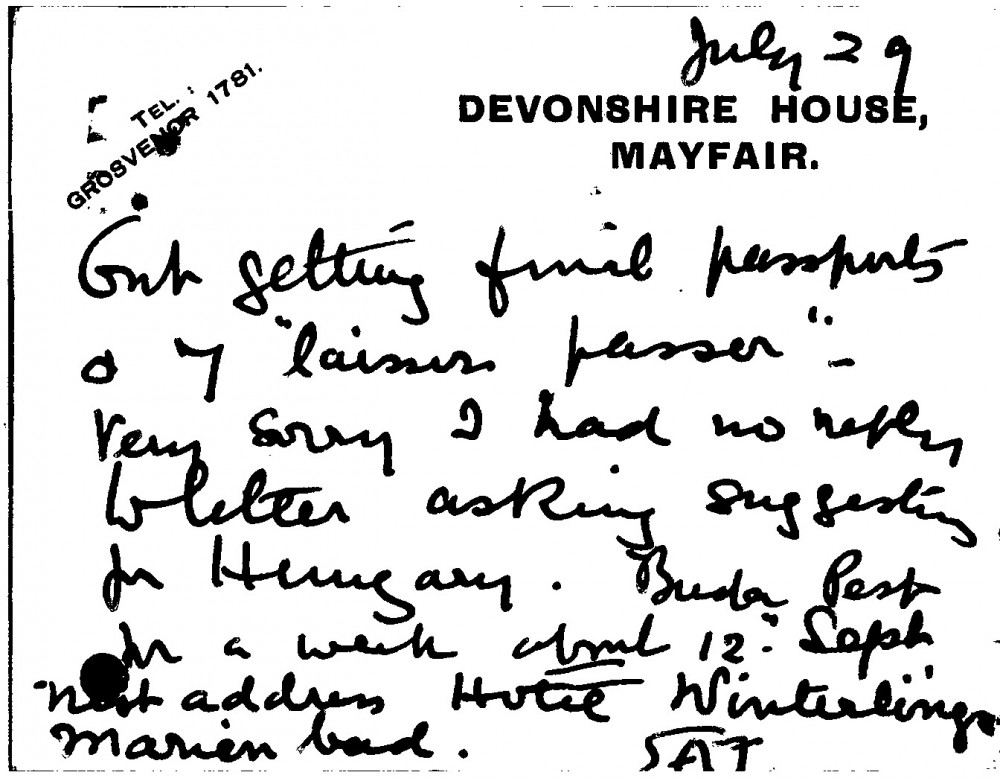 July 29
TEL.:
GROSVENOR 1781.
DEVONSHIRE HOUSE,
MAYFAIR.
getting final passports
"laisser passer" -
Very sorry I had no reply
to letter asking suggestions
for Hungary. Buda Pest
for a week about 12" Sept
Next address Hotel Winterlings
Marienbad.